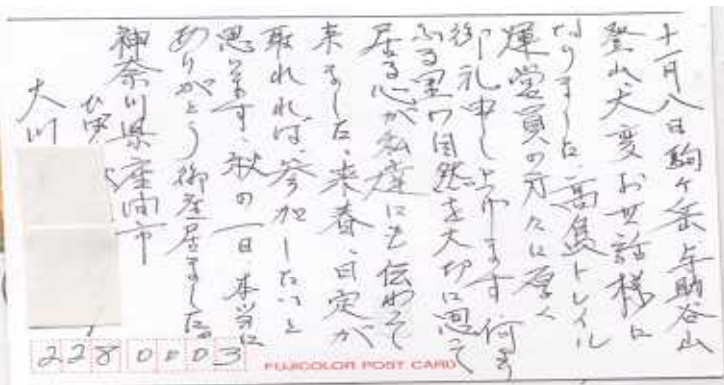 十一月八日駒ヶ岳与助谷山
登山、大変お世話様に
なりました、高島トレイル
運営員の方々に厚く
御礼申し上げます 何う
ふる里の自然を大切に思って
居る心が私達にも伝わって
来ました、来春、日定が
取れれば、参加したいと
思います、秋の一日本当に
ありがとう御座居ました。
神奈川県座間市
大川
2280003
FUJICOLOR POST CARD